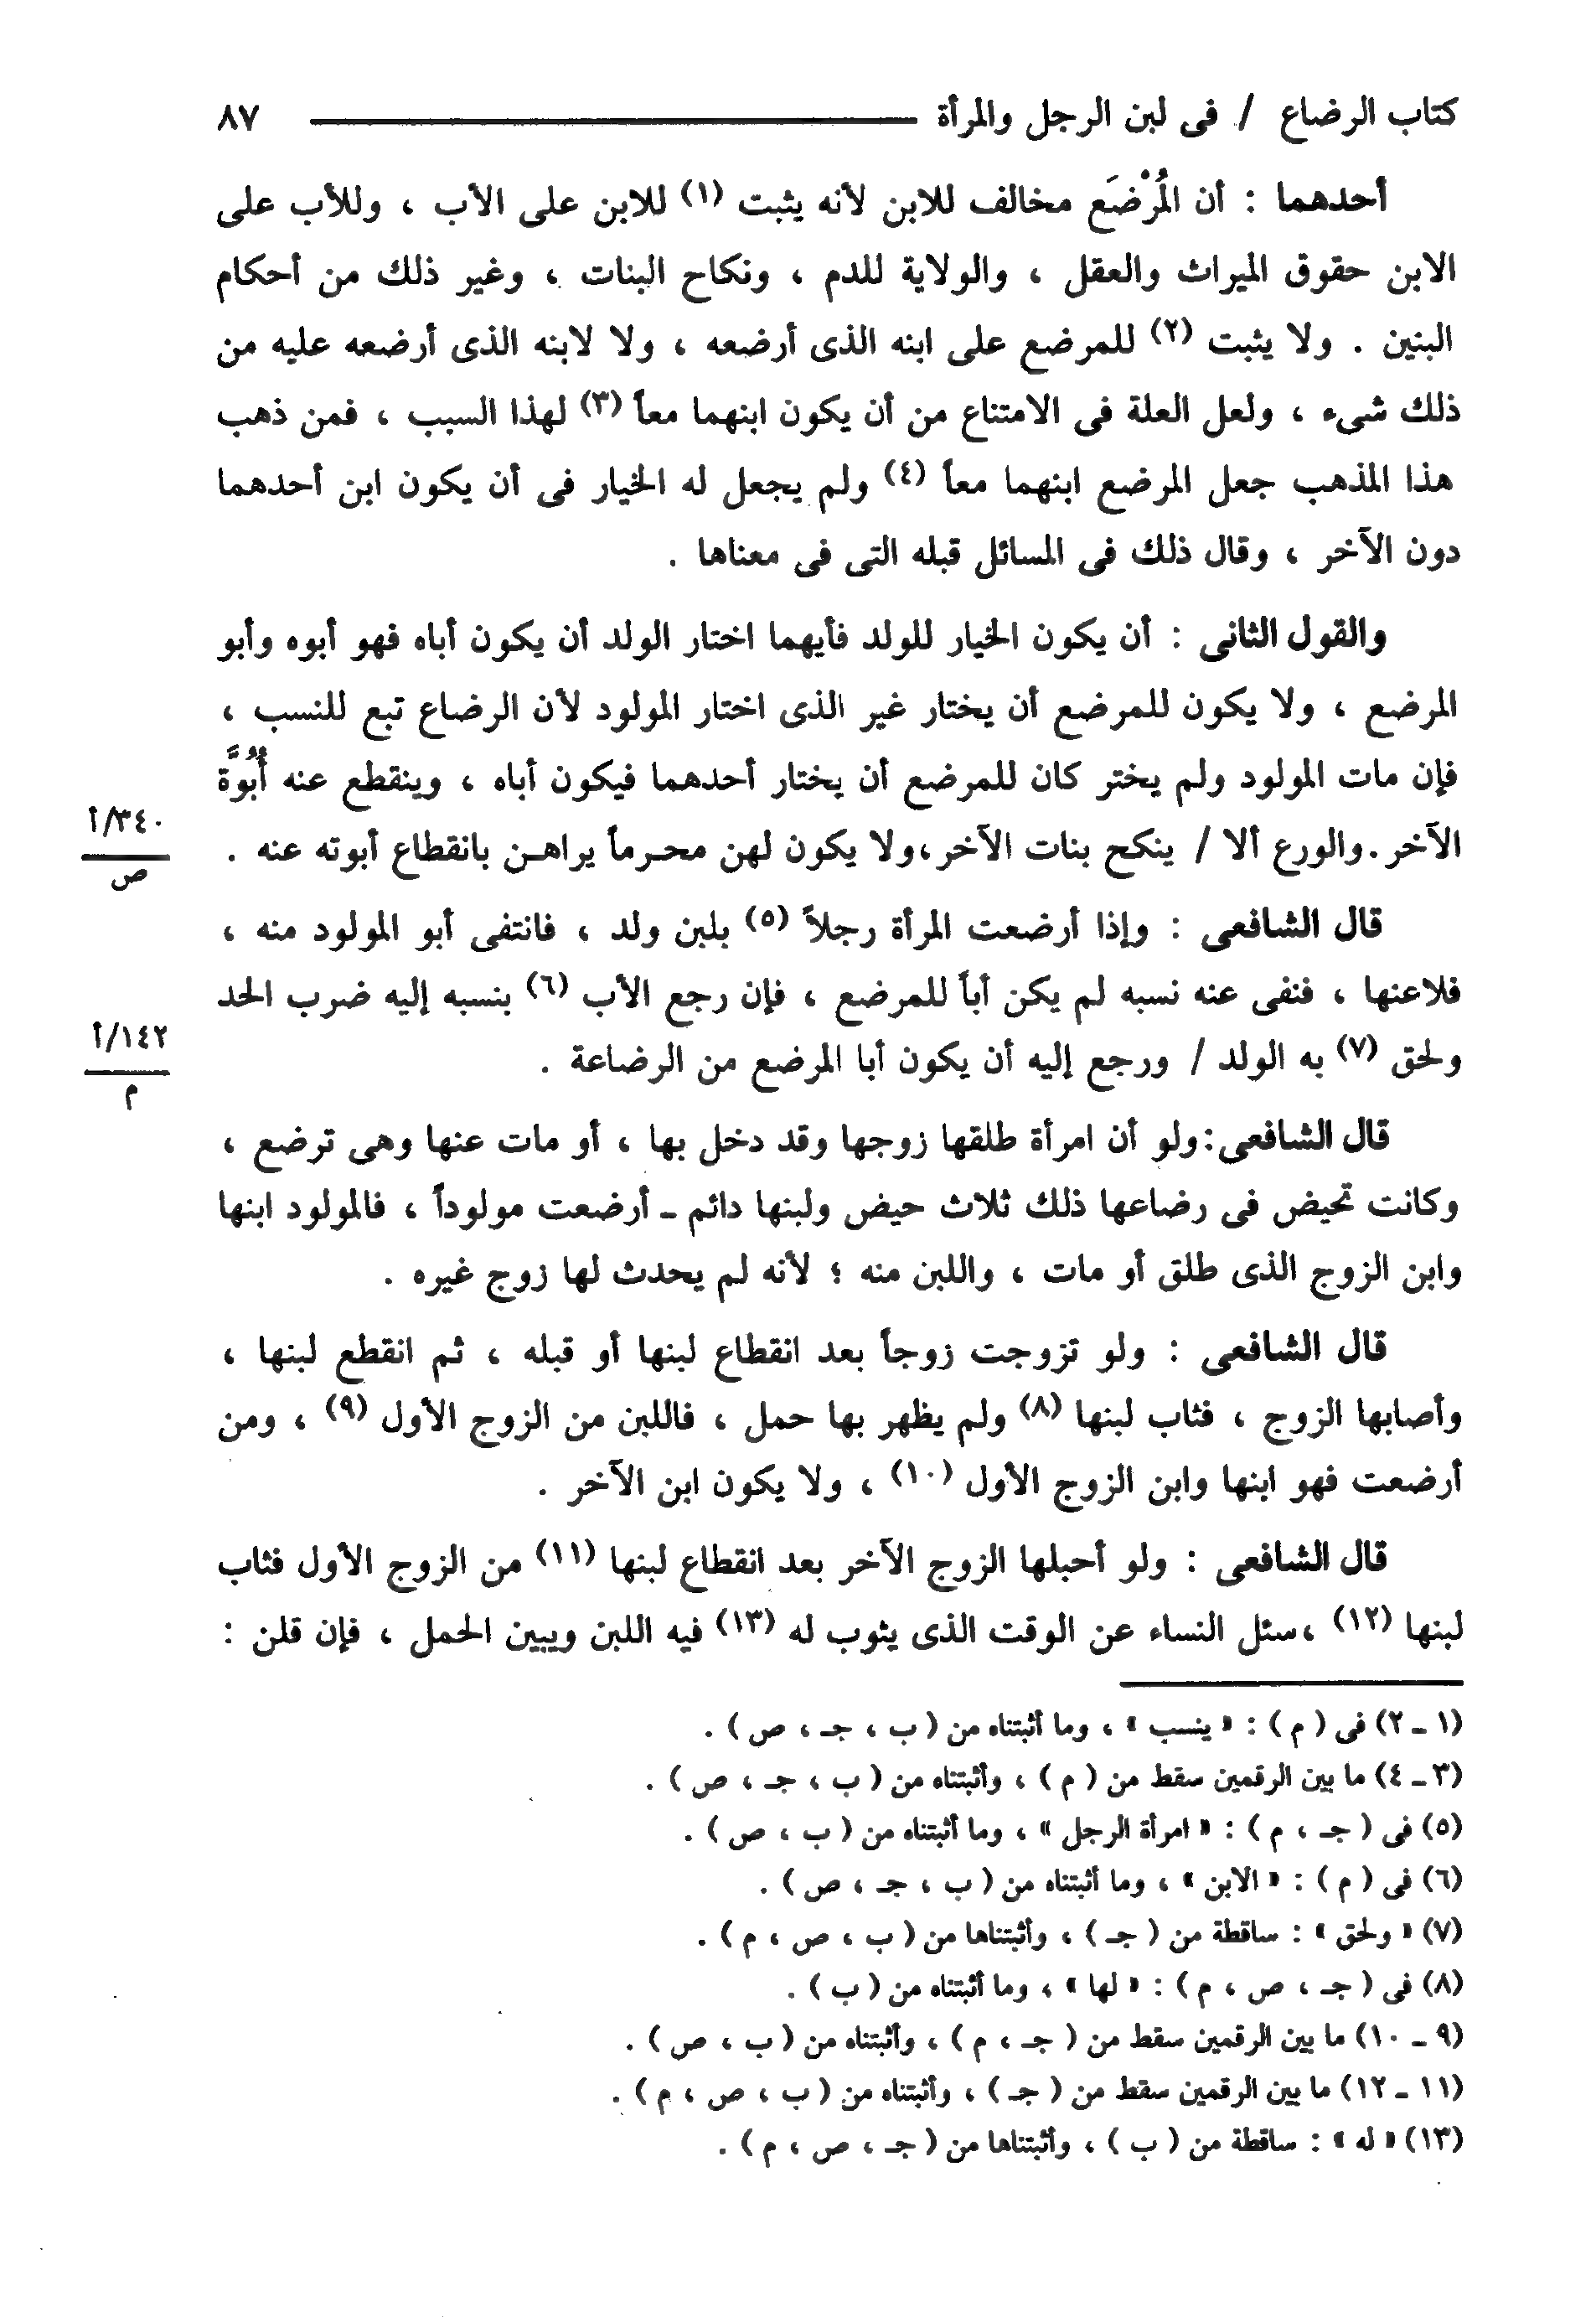 كتاب الرضاع / فى لبن الرجل والمرأة ٨٧
أحدهما : أن المُرْضَع مخالف للابن لأنه يثبت (١) للابن على الأب ، وللأب على
الابن حقوق الميراث والعقل ، والولاية للدم ، ونكاح البنات ، وغير ذلك من أحكام
البنين . ولا يثبت (٢) للمرضع على ابنه الذى أرضعه ، ولا لابنه الذى أرضعه عليه من
ذلك شىء ، ولعل العلة فى الامتناع من أن يكون ابنهما معاً (٣) لهذا السبب ، فمن ذهب
هذا المذهب جعل المرضع ابنهما معاً (٤) ولم يجعل له الخيار فى أن يكون ابن أحدهما
دون الآخر ، وقال ذلك فى المسائل قبله التى فى معناها .
والقول الثانى : أن يكون الخيار للولد فأيهما اختار الولد أن يكون أباه فهو أبوه وأبو
المرضع ، ولا يكون للمرضع أن يختار غير الذى اختار المولود لأن الرضاع تبع للنسب ،
فإن مات المولود ولم يختر كان للمرضع أن يختار أحدهما فيكون أباه ، وينقطع عنه أُبُوَّة
الآخر.والورع ألا / ينكح بنات الآخر،ولا يكون لهن محـرماً يراهـن بانقطاع أبوته عنه .
٣٤٠/أ
ص
قال الشافعى : وإذا أرضعت المرأة رجلاً (٥) بلبن ولد ، فانتفى أبو المولود منه ،
فلاعنها ، فنفى عنه نسبه لم يكن أباً للمرضع ، فإن رجع الأب (٦) بنسبه إليه ضرب الحد
ولحق (٧) به الولد / ورجع إليه أن يكون أبا المرضع من الرضاعة .
١٤٢/أ
م
قال الشافعى:ولو أن امرأة طلقها زوجها وقد دخل بها ، أو مات عنها وهى ترضع ،
وكانت تحيض فى رضاعها ذلك ثلاث حيض ولبنها دائم ـ أرضعت مولوداً ، فالمولود ابنها
وابن الزوج الذى طلق أو مات ، واللبن منه ؛ لأنه لم يحدث لها زوج غيره .
قال الشافعى : ولو تزوجت زوجاً بعد انقطاع لبنها أو قبله ، ثم انقطع لبنها ،
وأصابها الزوج ، فثاب لبنها (٨) ولم يظهر بها حمل ، فاللبن من الزوج الأول (٩) ، ومن
أرضعت فهو ابنها وابن الزوج الأول (١٠) ، ولا يكون ابن الآخر .
قال الشافعى : ولو أحبلها الزوج الآخر بعد انقطاع لبنها (١١) من الزوج الأول فثاب
لبنها (١٢) ،سئل النساء عن الوقت الذى يثوب له (١٣) فيه اللبن ويبين الحمل ، فإن قلن :
(١ ـ ٢) فى ( م ) : « ينسب » ، وما أثبتناه من ( ب ، جـ ، ص ) .
(٣ ـ ٤) ما بين الرقمين سقط من ( م ) ، وأثبتناه من ( ب ، جـ ، ص ) .
(٥) فى ( جـ ، م ) : « امرأة الرجل » ، وما أثبتناه من ( ب ، ص ) .
(٦) فى ( م ) : « الابن » ، وما أثبتناه من ( ب ، جـ ، ص ) .
(٧) « ولحق » : ساقطة من ( جـ ) ، وأثبتناها من ( ب ، ص ، م ) .
(٨) فى ( جـ ، ص ، م ) : « لها » ، وما أثبتناه من ( ب ) .
(٩ ـ ١٠) ما بين الرقمين سقط من ( جـ ، م ) ، وأثبتناه من ( ب ، ص ) .
(١١ ـ ١٢) ما بين الرقمين سقط من ( جـ ) ، وأثبتناه من ( ب ، ص ، م ) .
(١٣) « له » : ساقطة من ( ب ) ، وأثبتناها من ( جـ ، ص ، م ) .